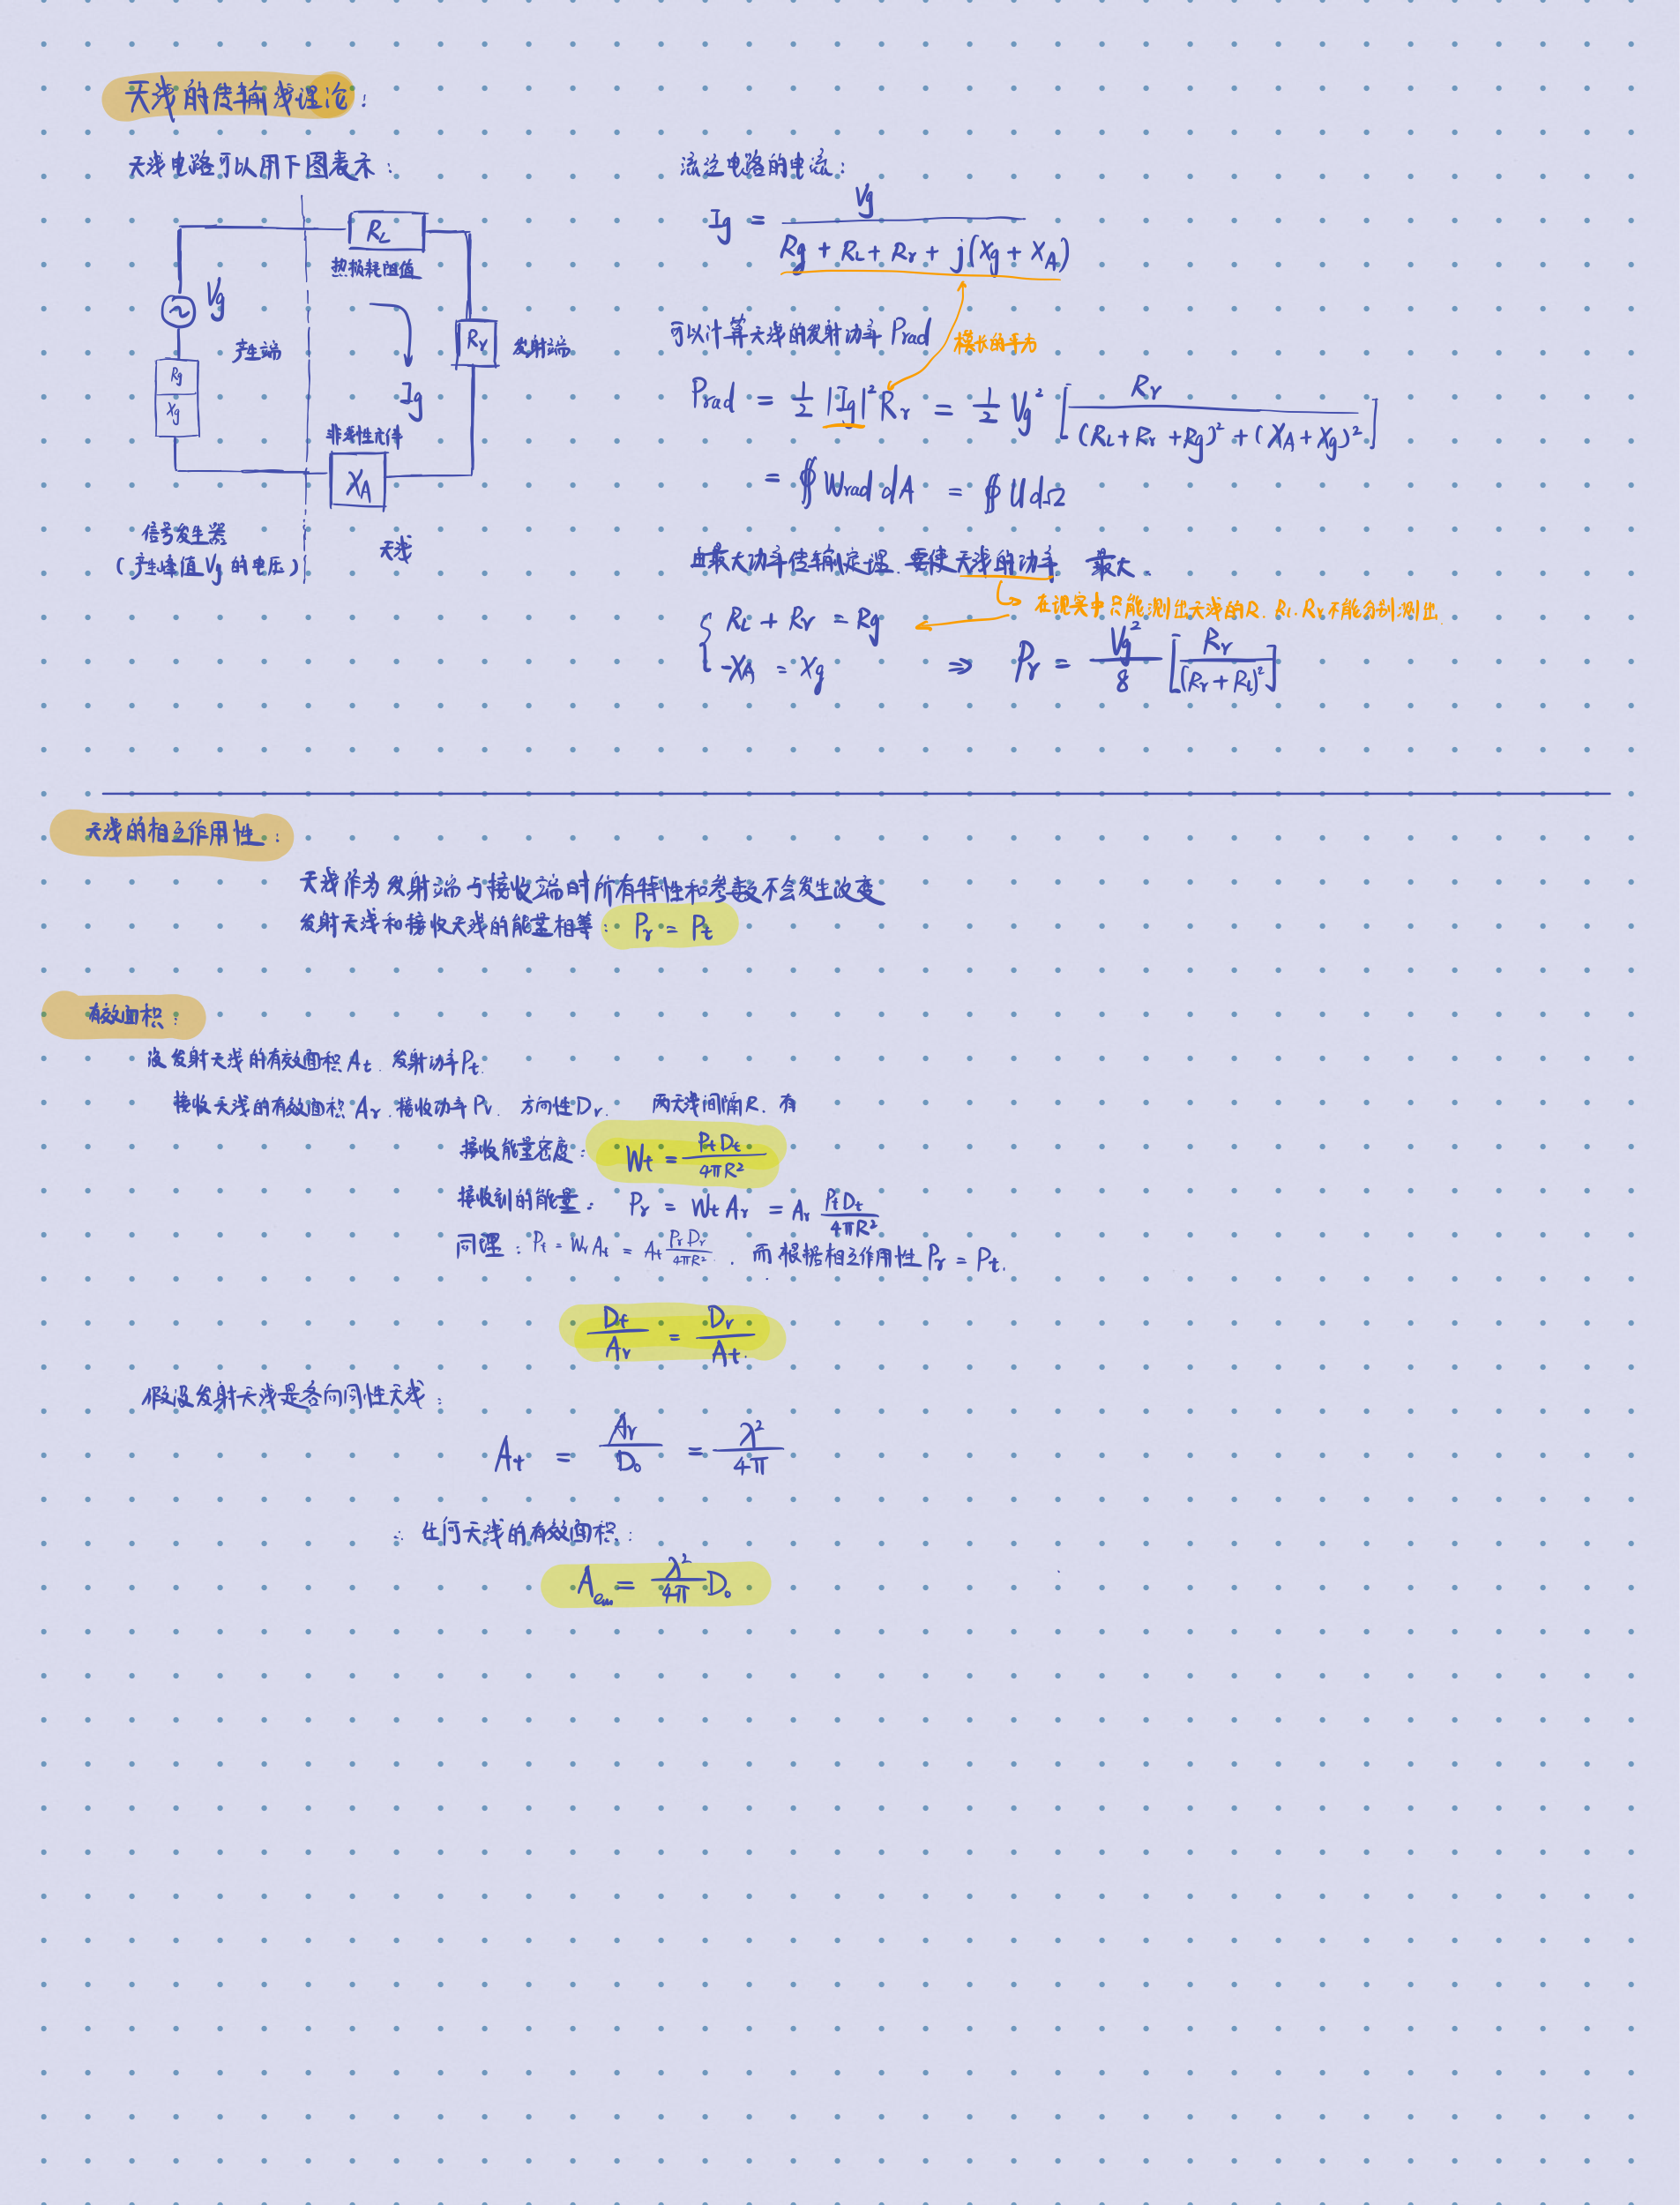 天线的传输线理论：
天线电路可以用下图表示：
R_L
热损耗阻值
V_g
产生端
R_r
发射端
R_g
X_g
I_g
非线性元件
X_A
信号发生器
（产生峰值 V_g 的电压）
天线
流过电路的电流：
I_g = V_g / (R_g + R_L + R_r + j(X_g + X_A))
可以计算天线的发射功率 P_rad
模长的平方
P_rad = 1/2 |I_g|² R_r = 1/2 V_g² [R_r / ((R_L + R_r + R_g)² + (X_A + X_g)²)]
= ∯ W_rad dA = ∯ U dΩ
由最大功率传输定理. 要使天线的功率 最大.
在现实中只能测出天线的R. R_L. R_r不能分别测出.
{ R_L + R_r = R_g
-X_A = X_g
⇒ P_r = V_g²/8 [R_r / (R_r + R_L)²]
天线的相互作用性：
天线作为发射端与接收端时所有特性和参数不会发生改变
发射天线和接收天线的能量相等： P_r = P_t
有效面积：
设发射天线的有效面积 A_t. 发射功率 P_t.
接收天线的有效面积 A_r. 接收功率 P_r. 方向性 D_r. 两天线间隔R. 有
接收能量密度： W_t = P_t D_t / 4πR²
接收到的能量： P_r = W_t A_r = A_r P_t D_t / 4πR²
同理：P_t = W_r A_t = A_t P_r D_r / 4πR². 而根据相互作用性 P_r = P_t.
D_t / A_r = D_r / A_t.
假设发射天线是各向同性天线：
A_t = A_r / D_0 = λ² / 4π
∴ 任何天线的有效面积：
A_em = λ² / 4π D_0